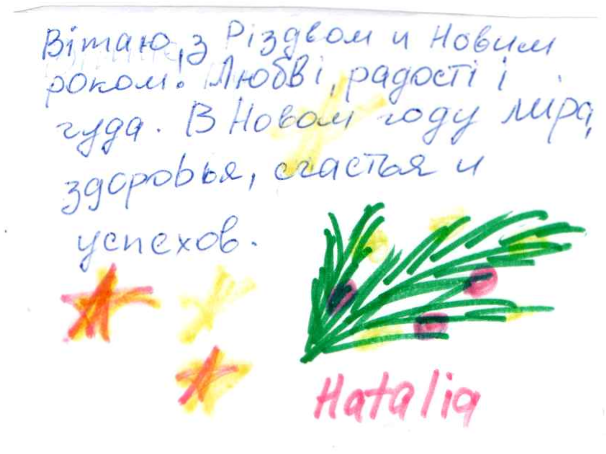 Вітаю, з Різдвом и Новим
роком! Любві, радості і
чуда. В Новом году міра,
здоровья, счастья и
успехов.
Natalia